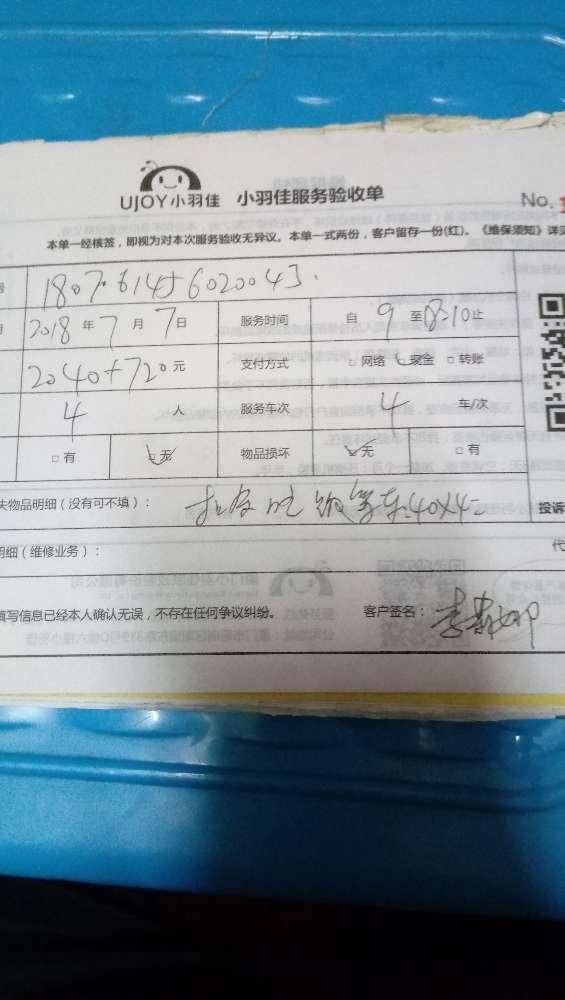 UJOY小羽佳 小羽佳服务验收单 No.
本单一经核签，即视为对本次服务验收无异议。本单一式两份，客户留存一份(红)。《维保须知》详见
号 180761456020043
2018年7月7日 服务时间 自9至18:10止
2040+720元 支付方式 □网络 现金 □转账
4人 服务车次 4车/次
□有 无 物品损坏 无 □有
失物品明细（没有可不填）： 40X4= 投诉
明细（维修业务）： 代
填写信息已经本人确认无误，不存在任何争议纠纷。 客户签名：